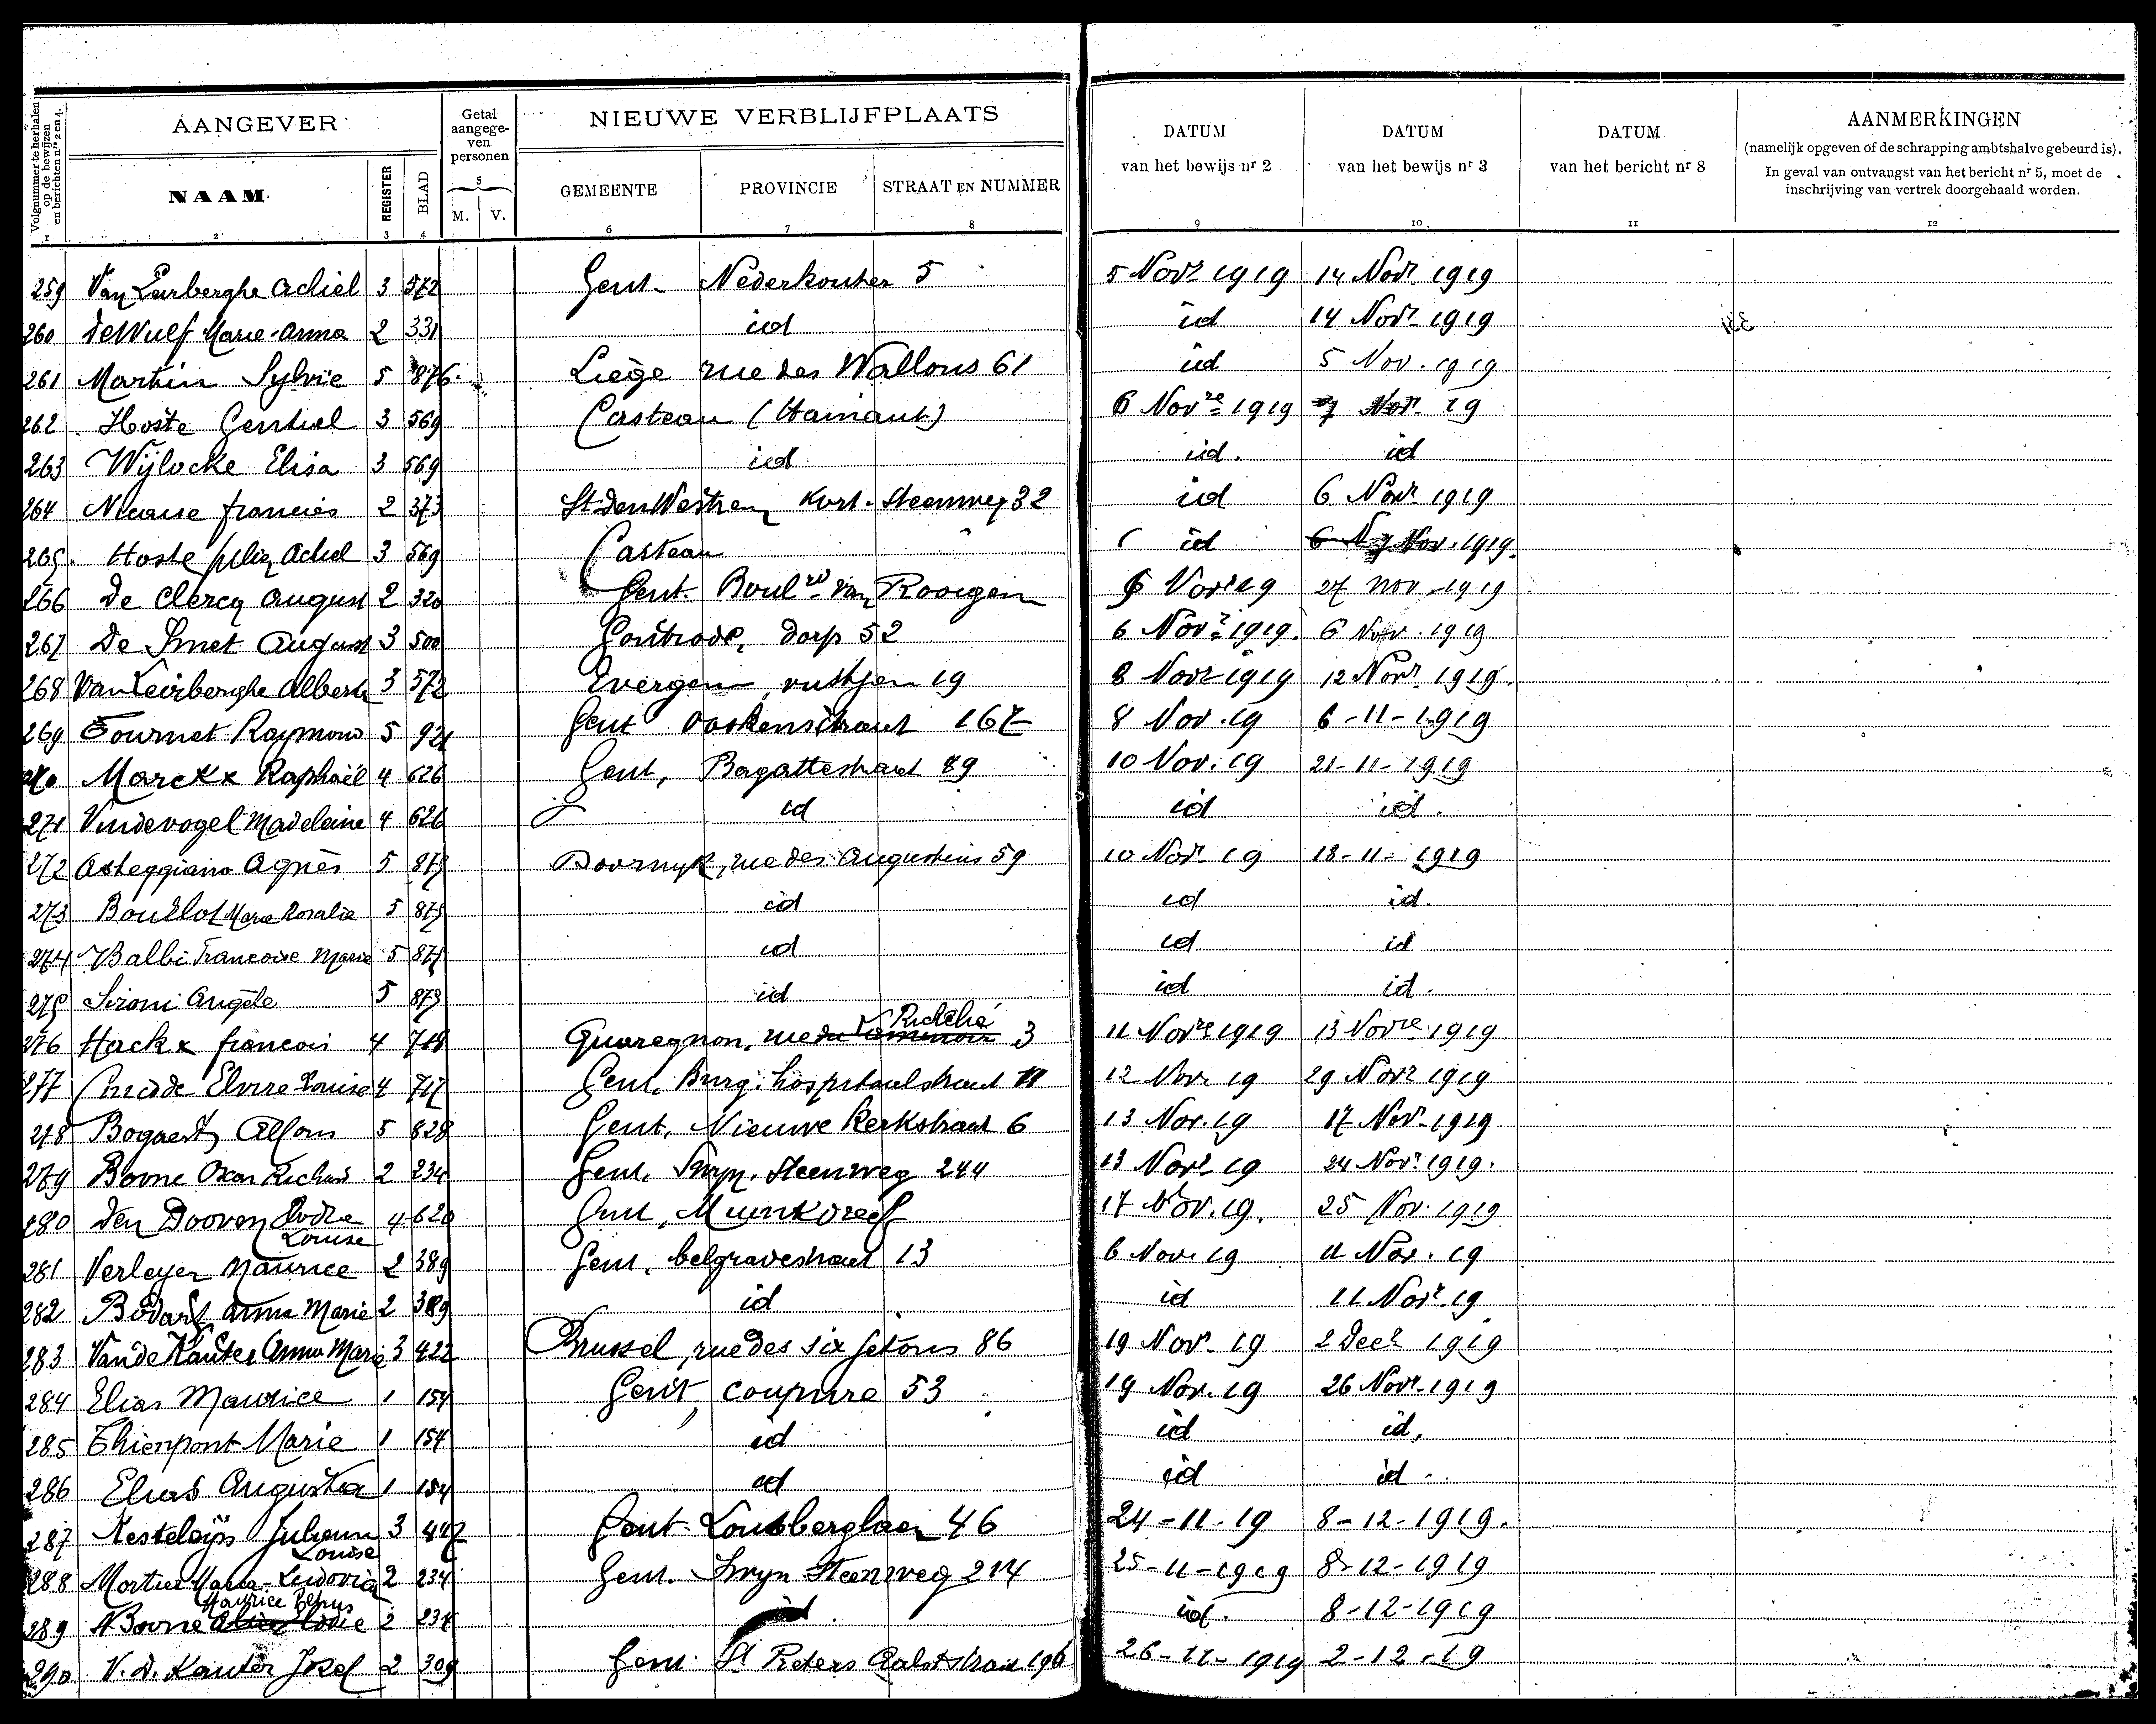 Volgnummer te herhalen op de bewijzen en berichten nrs 2 en 4.
AANGEVER
NAAM
REGISTER
BLAD
Getal aangegeven personen
5
M. V.
NIEUWE VERBLIJFPLAATS
GEMEENTE PROVINCIE STRAAT EN NUMMER
DATUM van het bewijs nr 2
DATUM van het bewijs nr 3
DATUM van het bericht nr 8
AANMERKINGEN
(namelijk opgeven of de schrapping ambtshalve gebeurd is).
In geval van ontvangst van het bericht nr 5, moet de
inschrijving van vertrek doorgehaald worden.
1 2 3 4 6 7 8 9 10 11 12
259 Van Leirberghe Achiel 3 572 Gent Nederkouter 5 5 Novr 1919 14 Novr 1919
260 De Wulf Marie-Anna 2 331 id id 14 Novr 1919
261 Martin Sylvie 5 876 Liège rue des Wallons 61 id 5 Nov. 1919
262 Hoste Gentiel 3 569 Casteau (Hainaut) 6 Novre 1919 7 Nov 19
263 Wijlocke Elisa 3 569 id id. id
264 francies 2 373 St Den Westrem Kort. Steenweg 32 id 6 Novr 1919
265. Hoste Achiel 3 569 Casteau id 7 Nov. 1919.
266 De Clercq August 2 320 Gent Boulrd Van Rooigem 6 Novr 19 27 Nov 1919
267 De Smet August 3 500 Gontrode, dorp 52 6 Novr 1919. 6 Nov. 1919
268 Van Leirberghe Alberte 3 572 Evergem, 19 8 Novr 1919 12 Novr 1919.
269 Fournet Raymond 5 921 Gent 167 8 Nov. 19 6-11-1919
270 Marckx Raphaël 4 626 Gent, Bagattestraat 89 10 Nov. 19 21-11-1919
271 Vindevogel Madeleine 4 626 id id id.
272 Asteggiano Agnès 5 879 Doornyk, rue des Augustins 59 10 Novr 19 18-11-1919
273 Bourlot Marie Rosalie 5 879 id id id.
274 Balbi Francoise Marie 5 879 id id id
275 Sironi Angèle 5 879 id id id.
276 Hackx francois 4 718 Quaregnon, rue 3 11 Novre 1919 13 Novre 1919
277 Elvire Louise 4 717 Gent, Burg. hospitaalstraat 11 12 Nov. 19 29 Novr 1919
278 Bogaert Alfons 5 828 Gent, Nieuwe Kerkstraat 6 13 Nov. 19 17 Nov. 1919
279 Borne Oscar Richard 2 234 Gent. Smyn. Steenweg 244 13 Novr 19 24 Novr 1919.
280 Den Dooven Louise 4 620 Gent, Muinkdreef 17 Nov. 19. 25 Nov. 1919
281 Verleyen Maurice 2 389 Gent, belgravestraat 13 6 Nov. 19 11 Nov. 19
282 Bodart Anna Marie 2 389 id id 11 Novr. 19
283 Van de Kauter Anna Marie 3 422 Brussel, rue des six jetons 86 19 Novr 19 2 Decr 1919
284 Elias Maurice 1 154 Gent, coupure 53 19 Nov. 19 26 Novr. 1919
285 Thienpont Marie 1 154 id id id.
286 Elias Augusta 1 154 id id id.
287 Kesteloijn Juliana Louise 3 447 Gent Lousberglaan 46 24-11-19 8-12-1919.
288 Mortier Maria-Ludovica 2 234 Gent. Smyn Steenweg 214 25-11-1919 8-12-1919
289 Borne Maurice 2 234 id id. 8-12-1919
290 V. d. Kauter Josef 2 309 Gent. St Pieters Aalststraat 196 26-11-1919 2-12-19